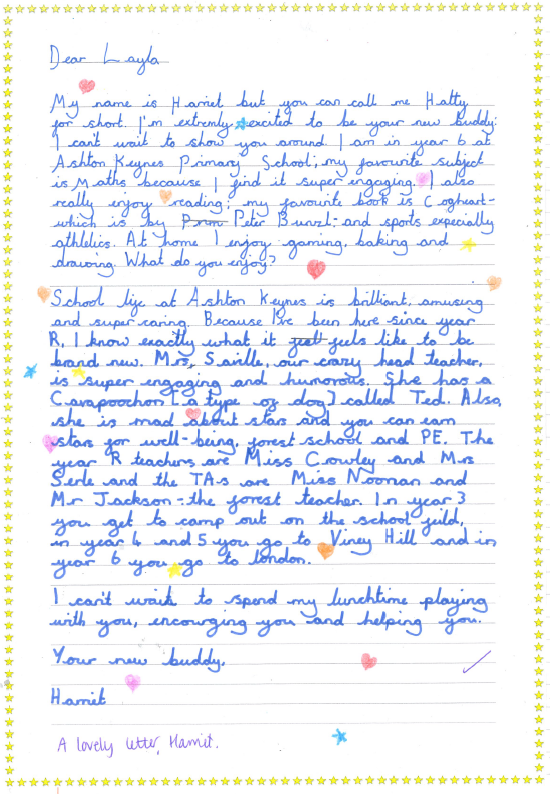 Dear Layla
My name is Harriet but you can call me Hatty
for short. I'm extremly excited to be your new buddy.
I can't wait to show you around. I am in year 6 at
Ashton Keynes Primary School; my favourite subject
is Maths because I find it super engaging. I also
really enjoy reading; my favourite book is Cogheart-
which is by Peter Bunzl- and sports especially
athletics. At home I enjoy gaming, baking and
drawing. What do you enjoy?
School life at Ashton Keynes is brilliant, amusing
and super caring. Because I've been here since year
R, I know exactly what it feels like to be
brand new. Mrs, Saville, our crazy head teacher,
is super engaging and humorous. She has a
Cavapoochon [a type of dog] called Ted. Also,
she is mad about stars and you can earn
stars for well-being, forest school and PE. The
year R teachers are Miss Crowley and Mrs
Serle and the TAs are Miss Noonan and
Mr Jackson-the forest teacher. In year 3
you get to camp out on the school feild,
in year 4 and 5 you go to Viney Hill and in
year 6 you go to london.
I can't wait to spend my lunchtime playing
with you, encouraging you and helping you.
Your new buddy,
Harriet
A lovely letter, Harriet.